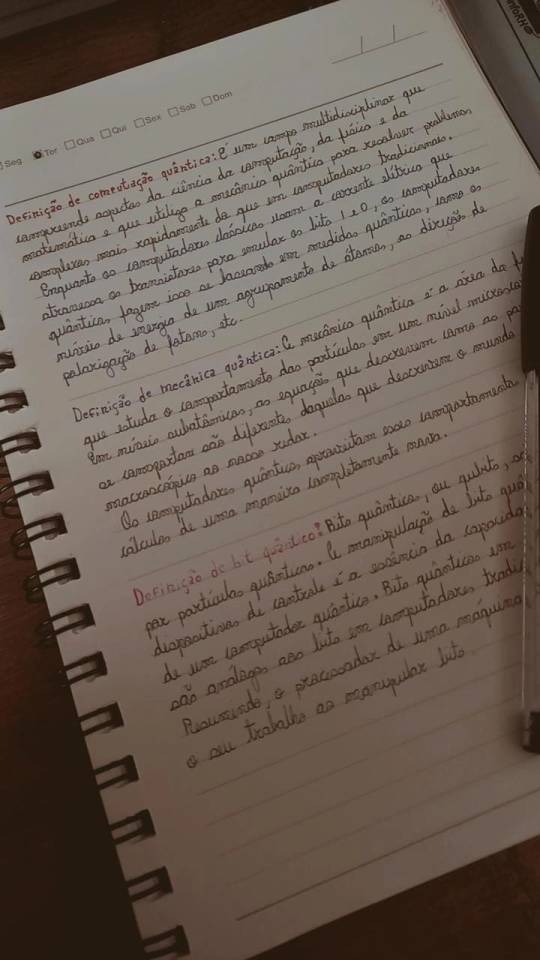 / /
Seg Ter Qua Qui Sex Sab Dom
Definição de computação quântica: É um campo multidisciplinar que
compreende aspectos da ciência da computação, da física e da
matemática e que utiliza a mecânica quântica para resolver problemas
complexos mais rapidamente do que em computadores tradicionais.
Enquanto os computadores clássicos usam a corrente elétrica que
atravessa os transistores para emular os bits 1 e 0, os computadores
quânticos, fazem isso se baseando em medidas quânticas, como os
níveis de energia de um agrupamento de átomos, as direções de
polarização de fótons, etc.
Definição de mecânica quântica: A mecânica quântica é a área da
que estuda o comportamento das partículas em um nível
Em níveis subatômicos, as equações que descrevem como as
se comportam são diferentes daquelas que descrevem o mundo
macroscópico ao nosso redor.
Os computadores quânticos aproveitam esses comportamentos
cálculos de uma maneira completamente nova.
Definição de bit quântico: Bits quânticos, ou qubits,
por partículas quânticas. A manipulação de bits
dispositivos de controle é a essência da
de um computador quântico. Bits quânticos em
são análogos aos bits em computadores
Resumindo, o processador de uma máquina
o seu trabalho ao manipular bits.